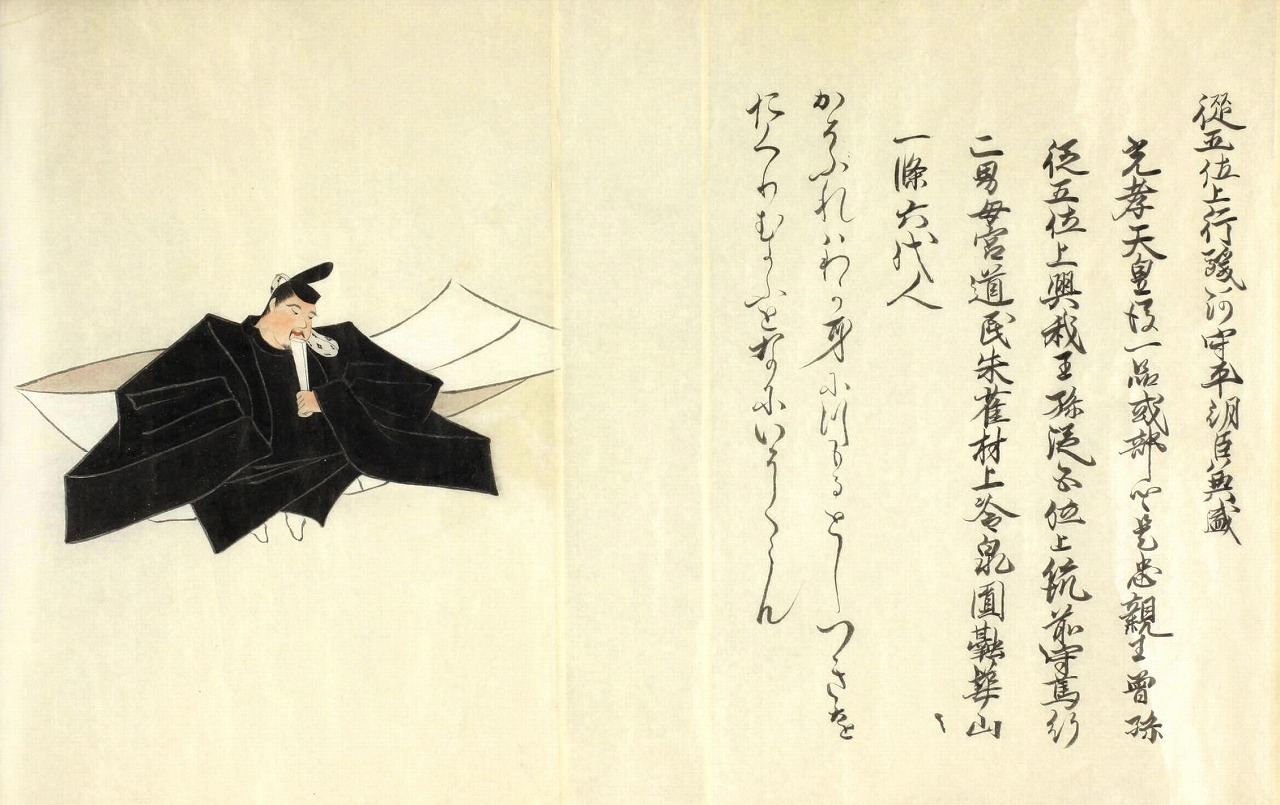 從五位上行駿河守平朝臣兼盛
光孝天皇後一品式部卿是忠親王曾孫
従五位上興我王孫従五位上筑前守篤行
二男母宮道氏朱雀村上冷泉圓融華山
一條六代人
かそふれはわか身につもるとしつきを
おくりむかふとなにいそくらん